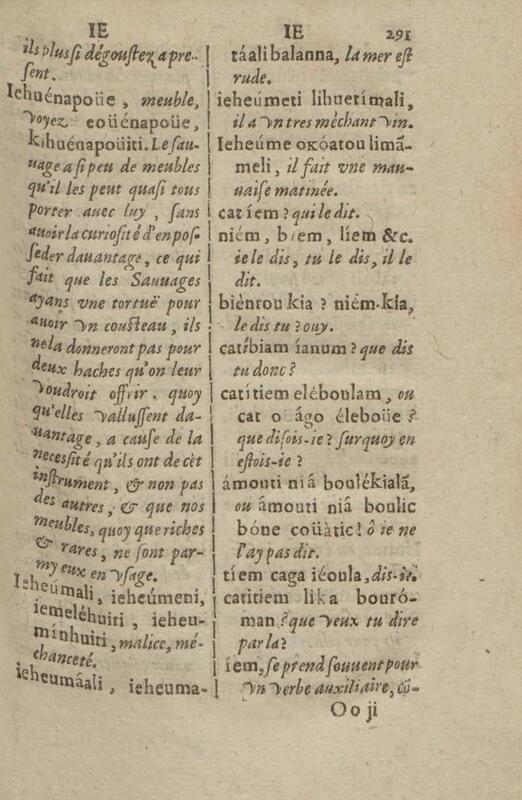 IE
ils plus si dégoustez a pre-
sent.
Iehuénapoüe, meuble,
voyez eoüénapoüe,
kihuénapoüiti. Le sau-
uage a si peu de meubles
qu'il les peut quasi tous
porter auec luy, sans
auoir la curiosité d'en pos-
seder dauantage, ce qui
fait que les Sauuages
ayans vne tortuë pour
auoir vn cousteau, ils
ne la donneront pas pour
deux haches qu'on leur
voudroit offrir. quoy
qu'elles vallussent da-
uantage, a cause de la
necessité qu'ils ont de cèt
instrument, & non pas
des autres, & que nos
meubles, quoy que riches
& rares, ne sont par-
my eux en vsage.
Ieheúmali, ieheúmeni,
iemeléhuiri, ieheu-
mínhuiti, malice, mé-
chanceté.
ieheumáali, ieheuma-
IE 291
táali balanna, la mer est
rude.
ieheúmeti lihuetímali,
il a vn tres méchant vin.
Ieheúme oκóatou limã-
meli, il fait vne mau-
uaise matinée.
cat íem? qui le dit.
niém, biem, líem &c.
ie le dis, tu le dis, il le
dit.
biénrou kia? niém-kía,
le dis tu? ouy.
catíbiam íanum? que dis
tu donc?
catítiem eléboulam, ou
cat o ágo éleboüe?
que disois-ie? surquoy en
estois-ie?
ámouti niã boulékialã,
ou ámouti niã boulic
bóne coüàtic! ô ie ne
l'ay pas dit.
tíem caga iéoula, dis-ie.
catitiem lika bouró-
man? que veux tu dire
par la?
íem, se prend souuent pour
vn verbe auxiliaire, cõ-
Oo ji